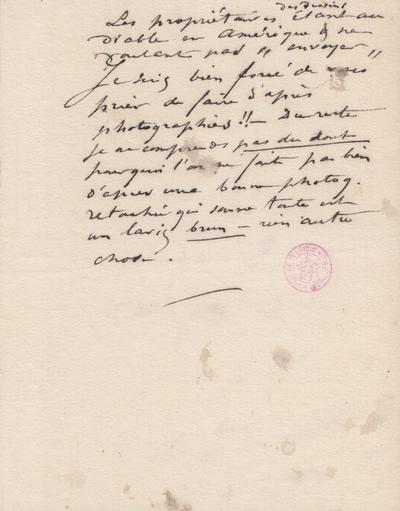 des dessins
Les propriétaires étant au
diable en Amérique & ne
voulant pas "envoyer"
Je suis bien forcé de vous
prier de faire d'après
photographies!! — Du reste
je ne comprends pas du tout
pourquoi l'on ne fait pas bien
d'après une bonne photog.
retouchée qui somme toute est
un lavis brun — rien autre
chose.